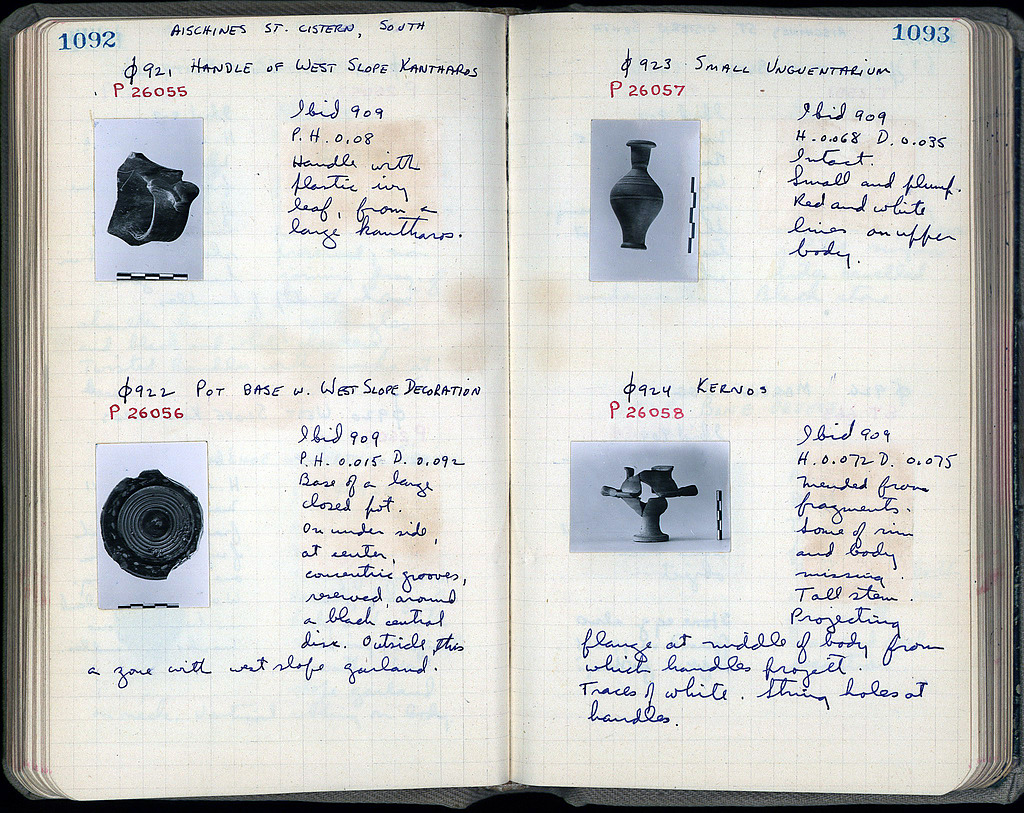 1092
AISCHINES ST. CISTERN, SOUTH
φ921 HANDLE OF WEST SLOPE KANTHAROS
P 26055
Ibid 909
P.H. 0.08
Handle with
plastic ivy
leaf, from a
large kantharos.
φ922 POT BASE W. WEST SLOPE DECORATION
P 26056
Ibid 909
P.H. 0.015 D. 0.092
Base of a large
closed pot.
On under side,
at center,
concentric grooves,
reserved, around
a black central
disk. Outside, this
a zone with west slope garland.
1093
φ923 SMALL UNGUENTARIUM
P 26057
Ibid 909
H. 0.068 D. 0.035
Intact.
Small and plump.
Red and white
lines on upper
body.
φ924 KERNOS
P 26058
Ibid 909
H. 0.072 D. 0.075
Mended from
fragments.
Some of rim
and body
missing.
Tall stem.
Projecting
flange at middle of body from
which handles project.
Traces of white. String holes at
handles.